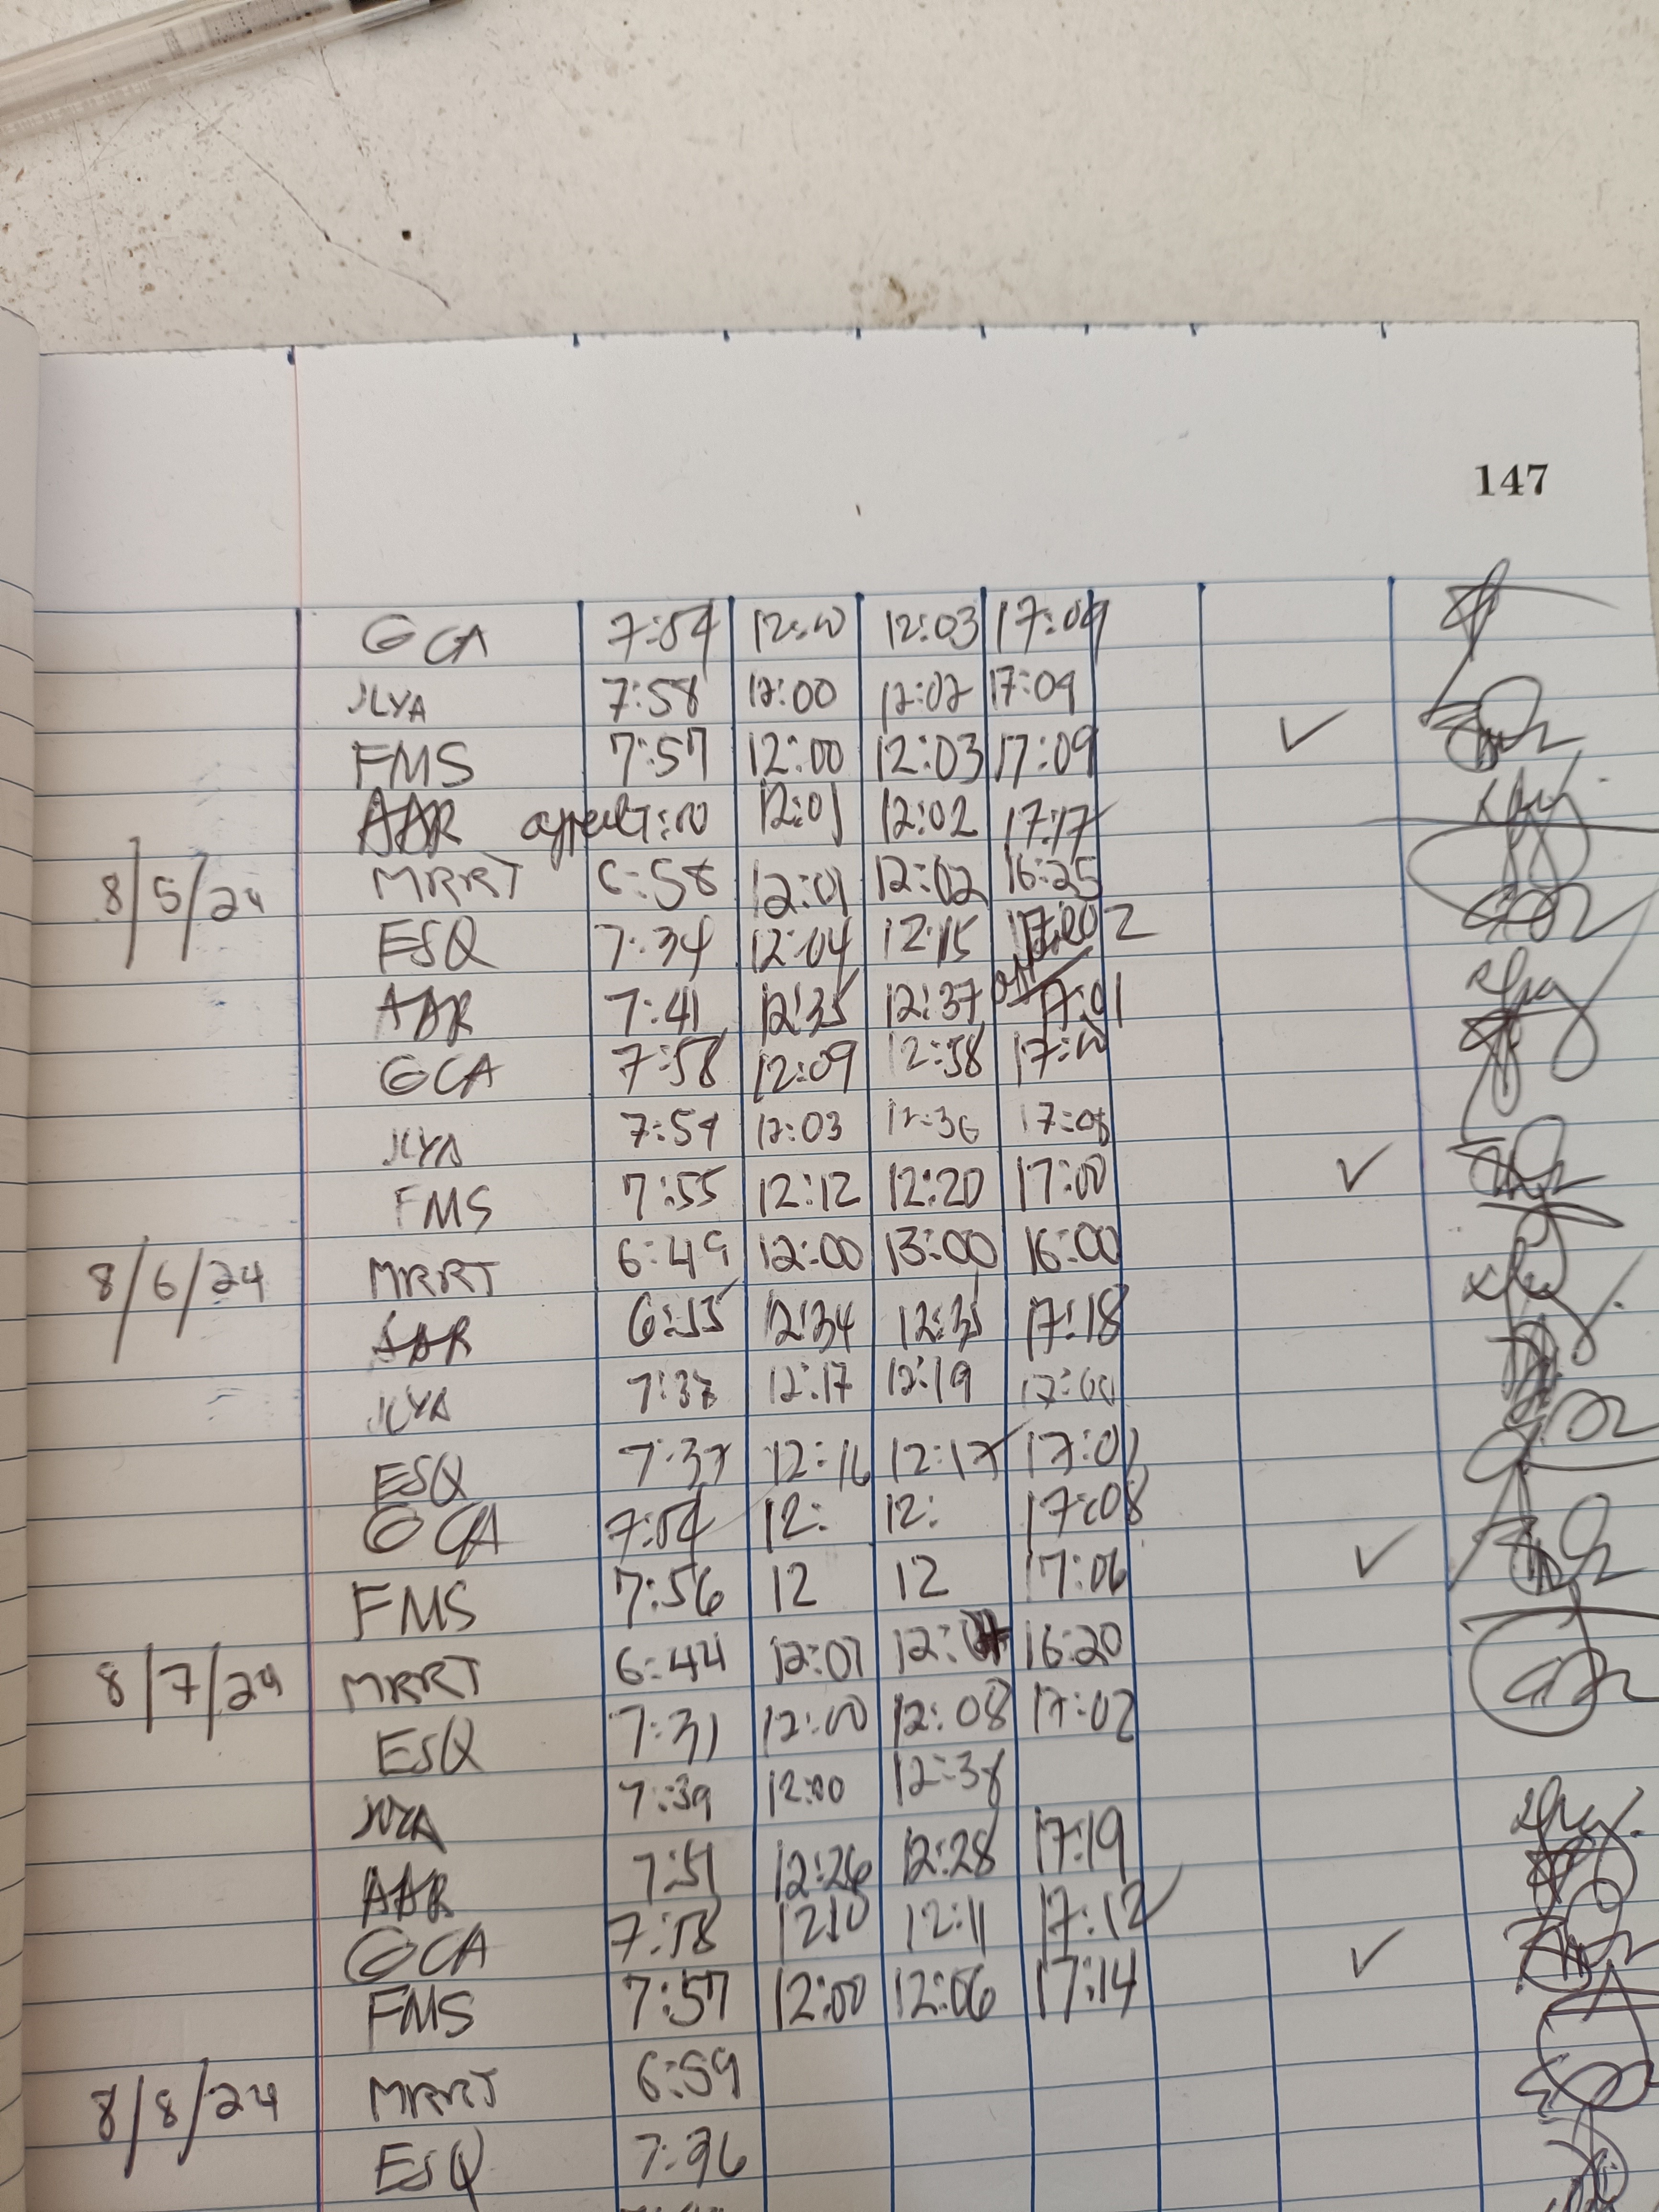 147
GCA 7:54 12:00 12:03 17:09
JLYA 7:58 12:00 12:02 17:09
FMS 7:57 12:00 12:03 17:09 ✓
AAR 7:00 12:01 12:02 17:17
8/5/24 MRRT 6:58 12:01 12:02 16:25
ESQ 7:34 12:04 12:15
AAR 7:41 12:35 12:37 17:01
GCA 7:58 12:09 12:58 17:00
JLYA 12:03 12:36 17:08
FMS 7:55 12:12 12:20 17:00 ✓
8/6/24 MRRT 6:49 12:00 13:00 16:00
AAR 6:55 12:34 12:35 17:18
JLYA 7:38 12:17 12:19
ESQ 7:37 12:16 12:17
GCA 7:54 12: 12: 17:08
FMS 7:56 12 12 17:06 ✓
8/7/24 MRRT 6:44 12:07 16:20
ESQ 7:31 12:00 12:08 17:02
JLYA 7:39 12:00 12:38
AAR 7:51 12:26 12:28 17:19
GCA 7:58 12:10 12:11 17:12
FMS 7:57 12:00 12:06 17:14 ✓
8/8/24 MRRT 6:59
ESQ 7:36